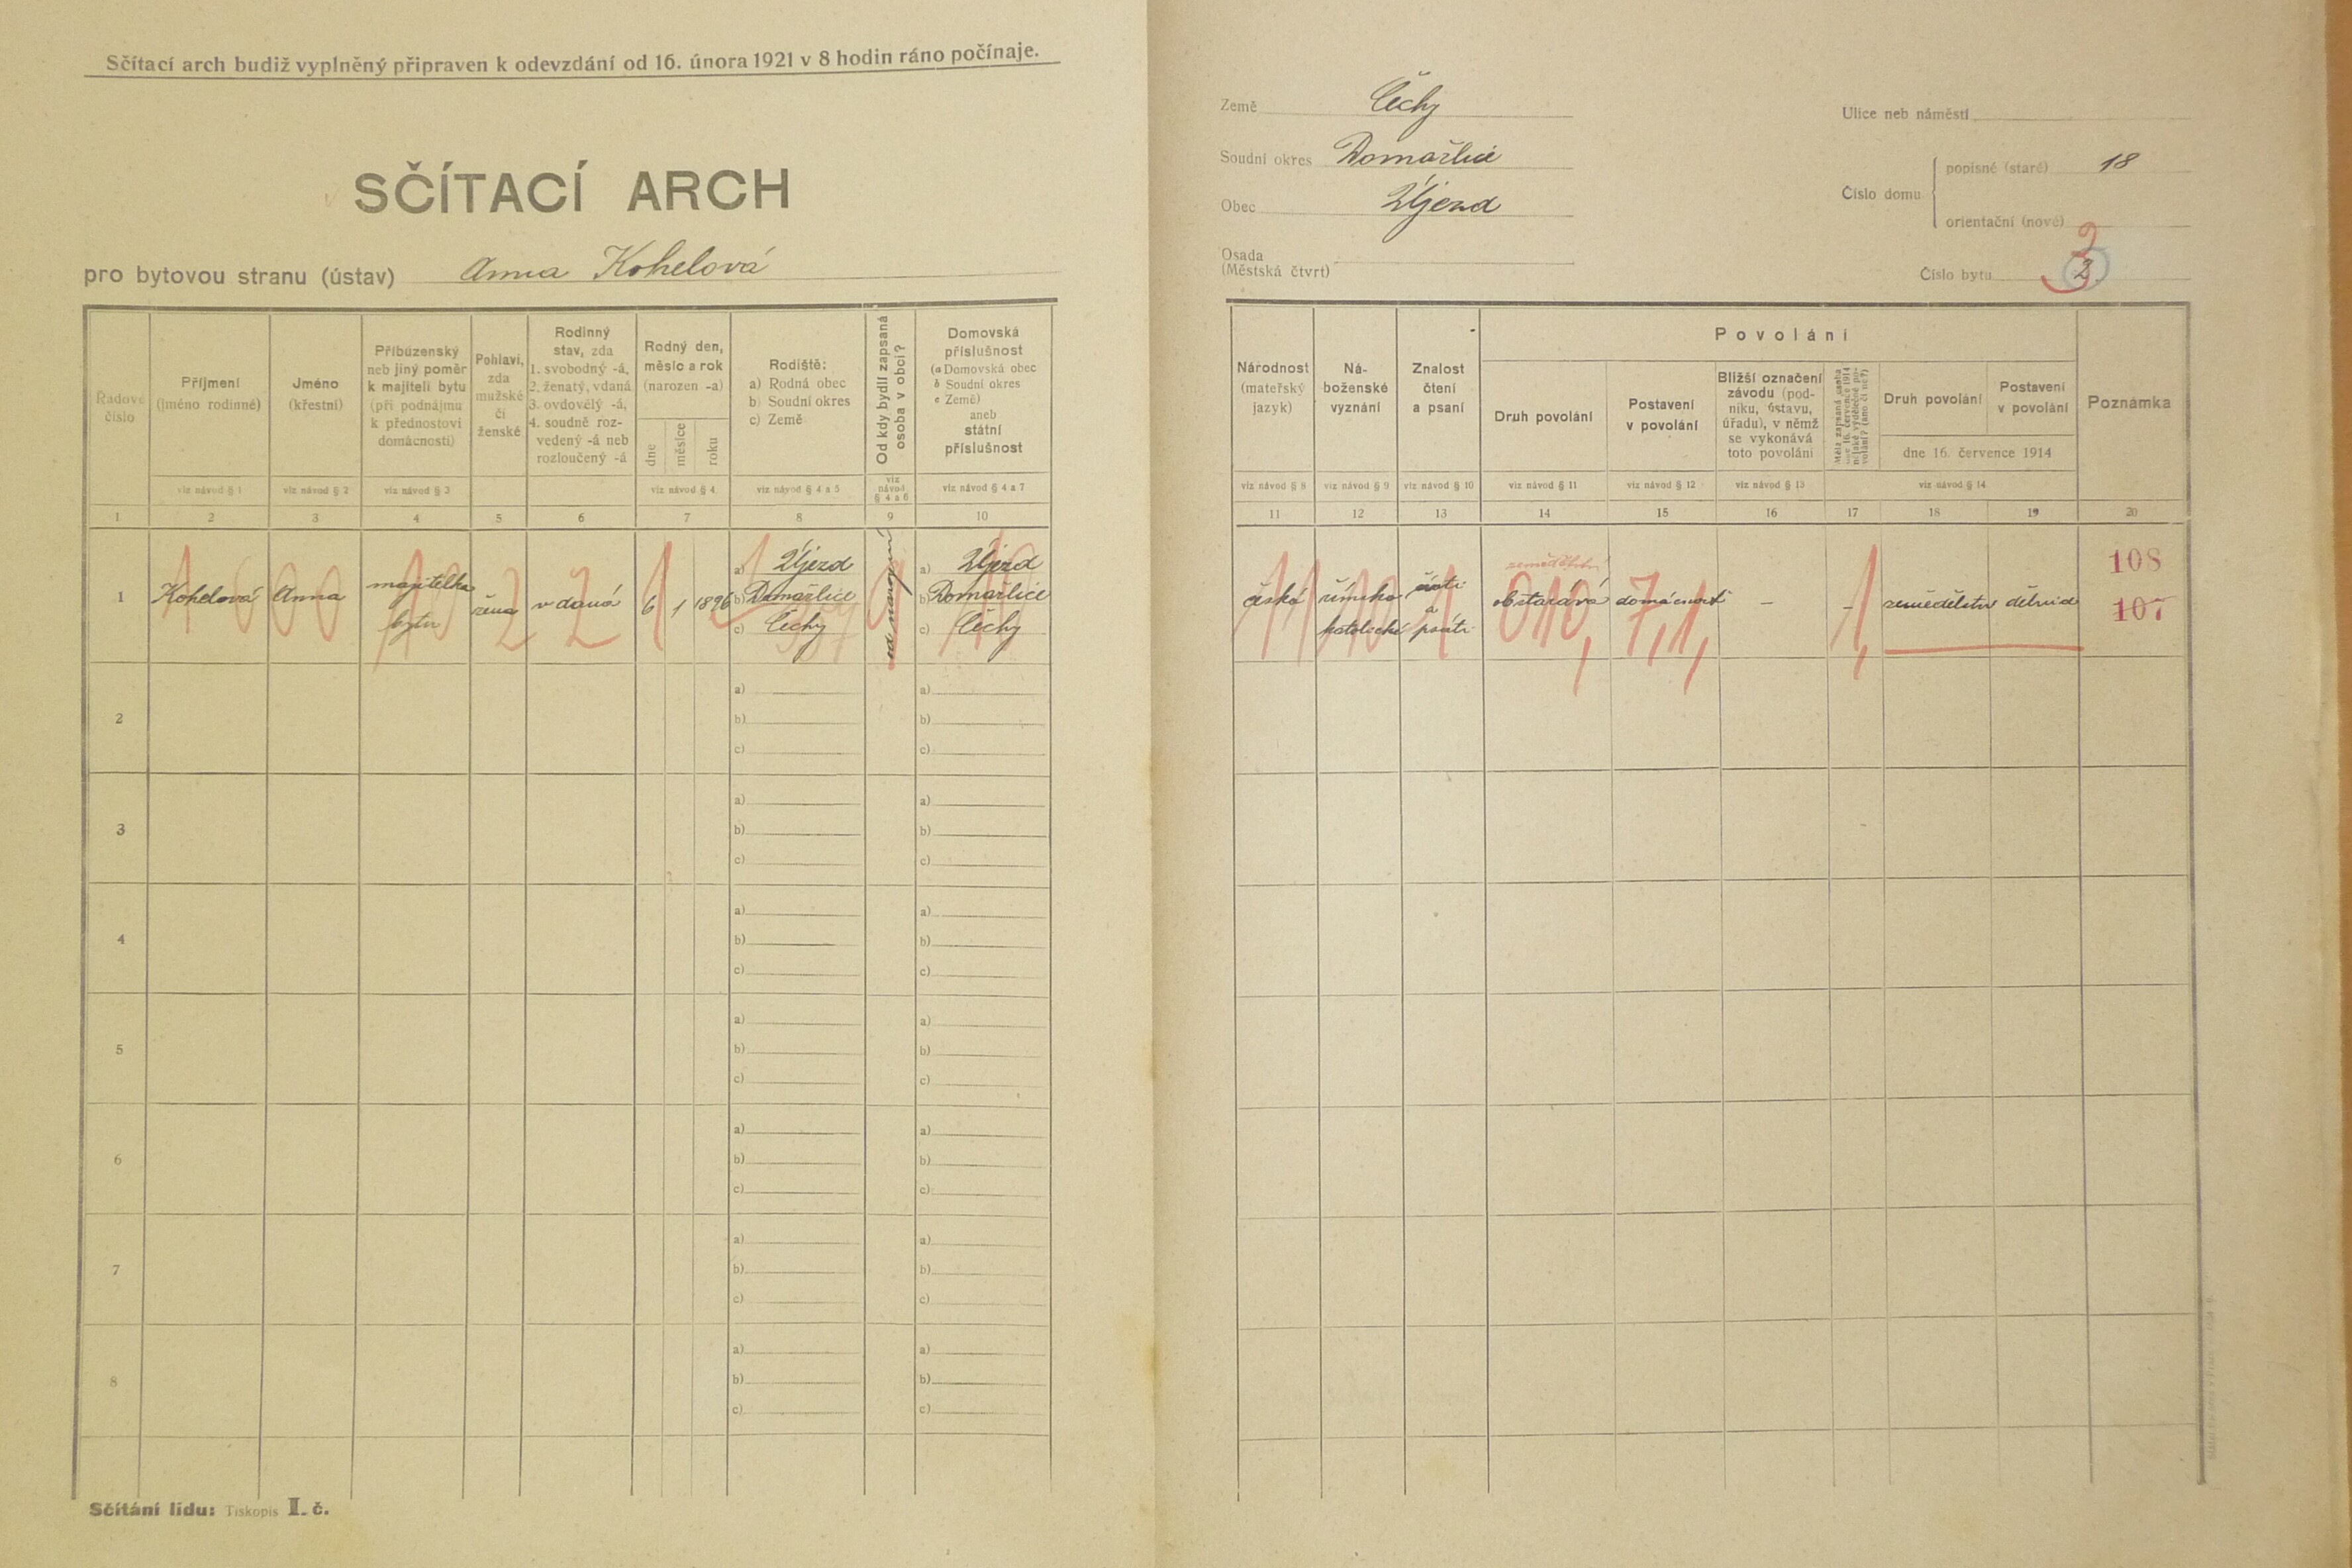 Sčítací arch budiž vyplněný připraven k odevzdání od 16. února 1921 v 8 hodin ráno počínaje.
SČÍTACÍ ARCH
pro bytovou stranu (ústav) Anna Kohelová
Řadové číslo
Příjmení
(jméno rodinné)
Jméno
(křestní)
Příbuzenský
neb jiný poměr
k majiteli bytu
(při podnájmu
k přednostovi
domácnosti)
Pohlaví,
zda
mužské
či
ženské
Rodinný
stav, zda
1. svobodný -á,
2. ženatý, vdaná
3. ovdovělý -á,
4. soudně roz-
vedený -á neb
rozloučený -á
Rodný den,
měsíc a rok
(narozen -a)
dne
měsíce
roku
Rodiště:
a) Rodná obec
b) Soudní okres
c) Země
Od kdy bydlí zapsaná
osoba v obci?
Domovská
příslušnost
(a Domovská obec
b Soudní okres
c Země)
aneb
státní
příslušnost
viz návod § 1
viz návod § 2
viz návod § 3
viz návod § 4
viz návod § 4 a 5
viz
návod
§ 4 a 6
viz návod § 4 a 7
1 2 3 4 5 6 7 8 9 10
1
Kohelová
Anna
majitelka
bytu
žena
vdaná
6 1 1896
a) Újezd
b) Domažlice
c) Čechy
od narození
a) Újezd
b) Domažlice
c) Čechy
2
a) a)
b) b)
c) c)
3
a) a)
b) b)
c) c)
4
a) a)
b) b)
c) c)
5
a) a)
b) b)
c) c)
6
a) a)
b) b)
c) c)
7
a) a)
b) b)
c) c)
8
a) a)
b) b)
c) c)
Sčítání lidu: Tiskopis I. č.
Země Čechy
Soudní okres Domažlice
Obec Újezd
Osada
(Městská čtvrt)
Ulice neb náměstí
Číslo domu
popisné (staré) 18
orientační (nové)
3
Číslo bytu 2
Národnost
(mateřský
jazyk)
Ná-
boženské
vyznání
Znalost
čtení
a psaní
Povolání
Druh povolání
Postavení
v povolání
Bližší označení
závodu (pod-
niku, ústavu,
úřadu), v němž
se vykonává
toto povolání
Měla zapsaná osoba
dne 16. července 1914
nějaké výdělečné po-
volání? (ano či ne?)
Druh povolání
Postavení
v povolání
dne 16. července 1914
Poznámka
viz návod § 8
viz návod § 9
viz návod § 10
viz návod § 11
viz návod § 12
viz návod § 13
viz návod § 14
11 12 13 14 15 16 17 18 19 20
česká
římsko
katolické
čísti
a
psáti
obstarává
domácnost
–
–
zemědělství
010,
7,1,
108
107